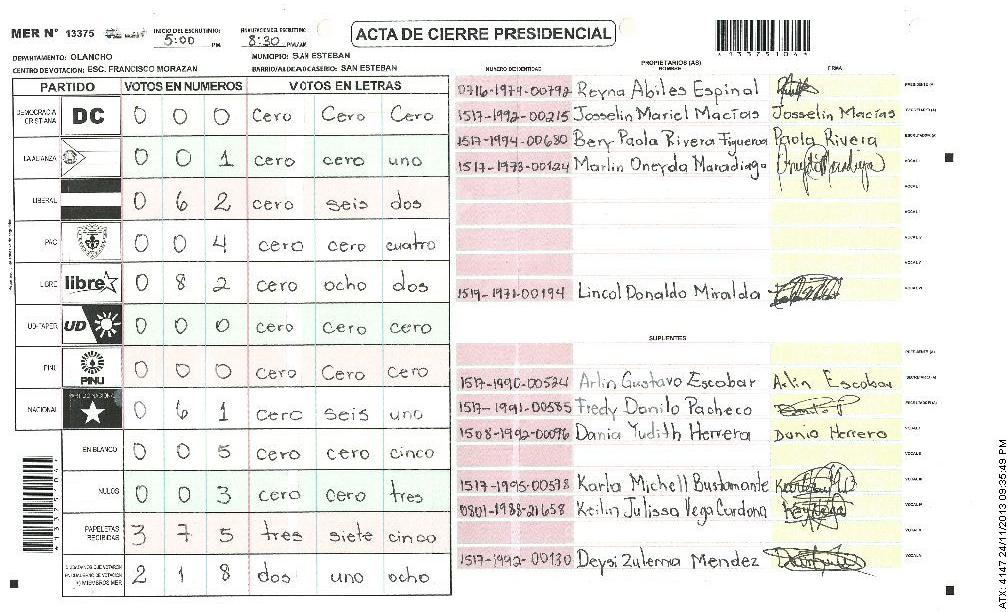 MER N° 13375
INICIO DEL ESCRUTINIO: 5:00 PM
FINALIZACION DEL ESCRUTINIO: 8:30 PM/AM
ACTA DE CIERRE PRESIDENCIAL
DEPARTAMENTO: OLANCHO
MUNICIPIO: SAN ESTEBAN
CENTRO DE VOTACION: ESC. FRANCISCO MORAZAN
BARRIO/ALDEA/CASERIO: SAN ESTEBAN
PARTIDO VOTOS EN NUMEROS VOTOS EN LETRAS
DEMOCRACIA CRISTIANA DC 0 0 0 Cero Cero Cero
LA ALIANZA 0 0 1 cero cero uno
LIBERAL 0 6 2 cero seis dos
PAC 0 0 4 cero cero cuatro
LIBRE libre 0 8 2 cero ocho dos
UD-FAPER UD 0 0 0 cero cero cero
PINU PINU 0 0 0 cero Cero Cero
NACIONAL PARTIDO NACIONAL 0 6 1 cero seis uno
EN BLANCO 0 0 5 cero cero cinco
NULOS 0 0 3 cero cero tres
PAPELETAS RECIBIDAS 3 7 5 tres siete cinco
CIUDADANOS QUE VOTARON EN CUADERNO DE VOTACION Y MIEMBROS MER 2 1 8 dos uno ocho
PROPIETARIOS (AS)
NUMERO DE IDENTIDAD NOMBRE FIRMA
0716-1979-00792 Reyna Abiles Espinal PRESIDENTE (A)
1517-1992-00215 Josselin Mariel Macías Josselin Macías SECRETARIO (A)
1517-1994-00680 Bery Paola Rivera Figueroa Paola Rivera ESCRUTADOR (A)
1517-1973-00124 Marlin Oneyda Maradiaga VOCAL I
VOCAL II
VOCAL III
VOCAL IV
VOCAL V
1519-1971-00194 Lincol Donaldo Miralda VOCAL VI
SUPLENTES
PRESIDENTE (A)
1517-1990-00524 Arlin Gustavo Escobar Arlin Escobar SECRETARIO (A)
1517-1991-00585 Fredy Danilo Pacheco ESCRUTADOR (A)
1508-1992-00096 Dania Yudith Herrera Dania Herrera VOCAL I
VOCAL II
1517-1995-00578 Karla Michell Bustamante VOCAL III
0801-1988-21658 Keilin Julissa Vega Cardona VOCAL IV
VOCAL V
1517-1992-00130 Deysi Zulema Mendez VOCAL VI
ATX: 4147 24/11/2013 09:35:49 PM